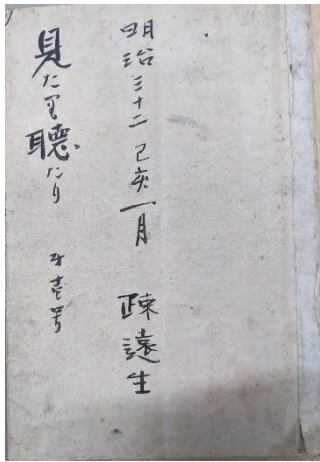 明治三十二己亥一月 疎遠生
見たり聴たり 才壱号